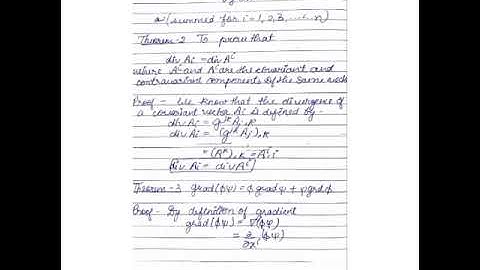 a (summed for i = 1, 2, 3, ...... n)
Theorem-2 To prove that
div Ai = div Aⁱ
where Aⁱ and Aⁱ are the covariant and
contravariant components of the same
Proof - We know that the divergence of
a covariant vector Ai is defined by -
div Ai = gʲᵏ Aj,k
div Ai = (gʲᵏ Aj),k
= (Aᵏ),k = Aⁱ,i
[div Ai = div Aⁱ]
Theorem-3 grad(φψ) = φ grad ψ + ψ grad φ
Proof - By definition of gradient
grad(φψ) = ∇(φψ)
= ∂/∂xⁱ (φψ)